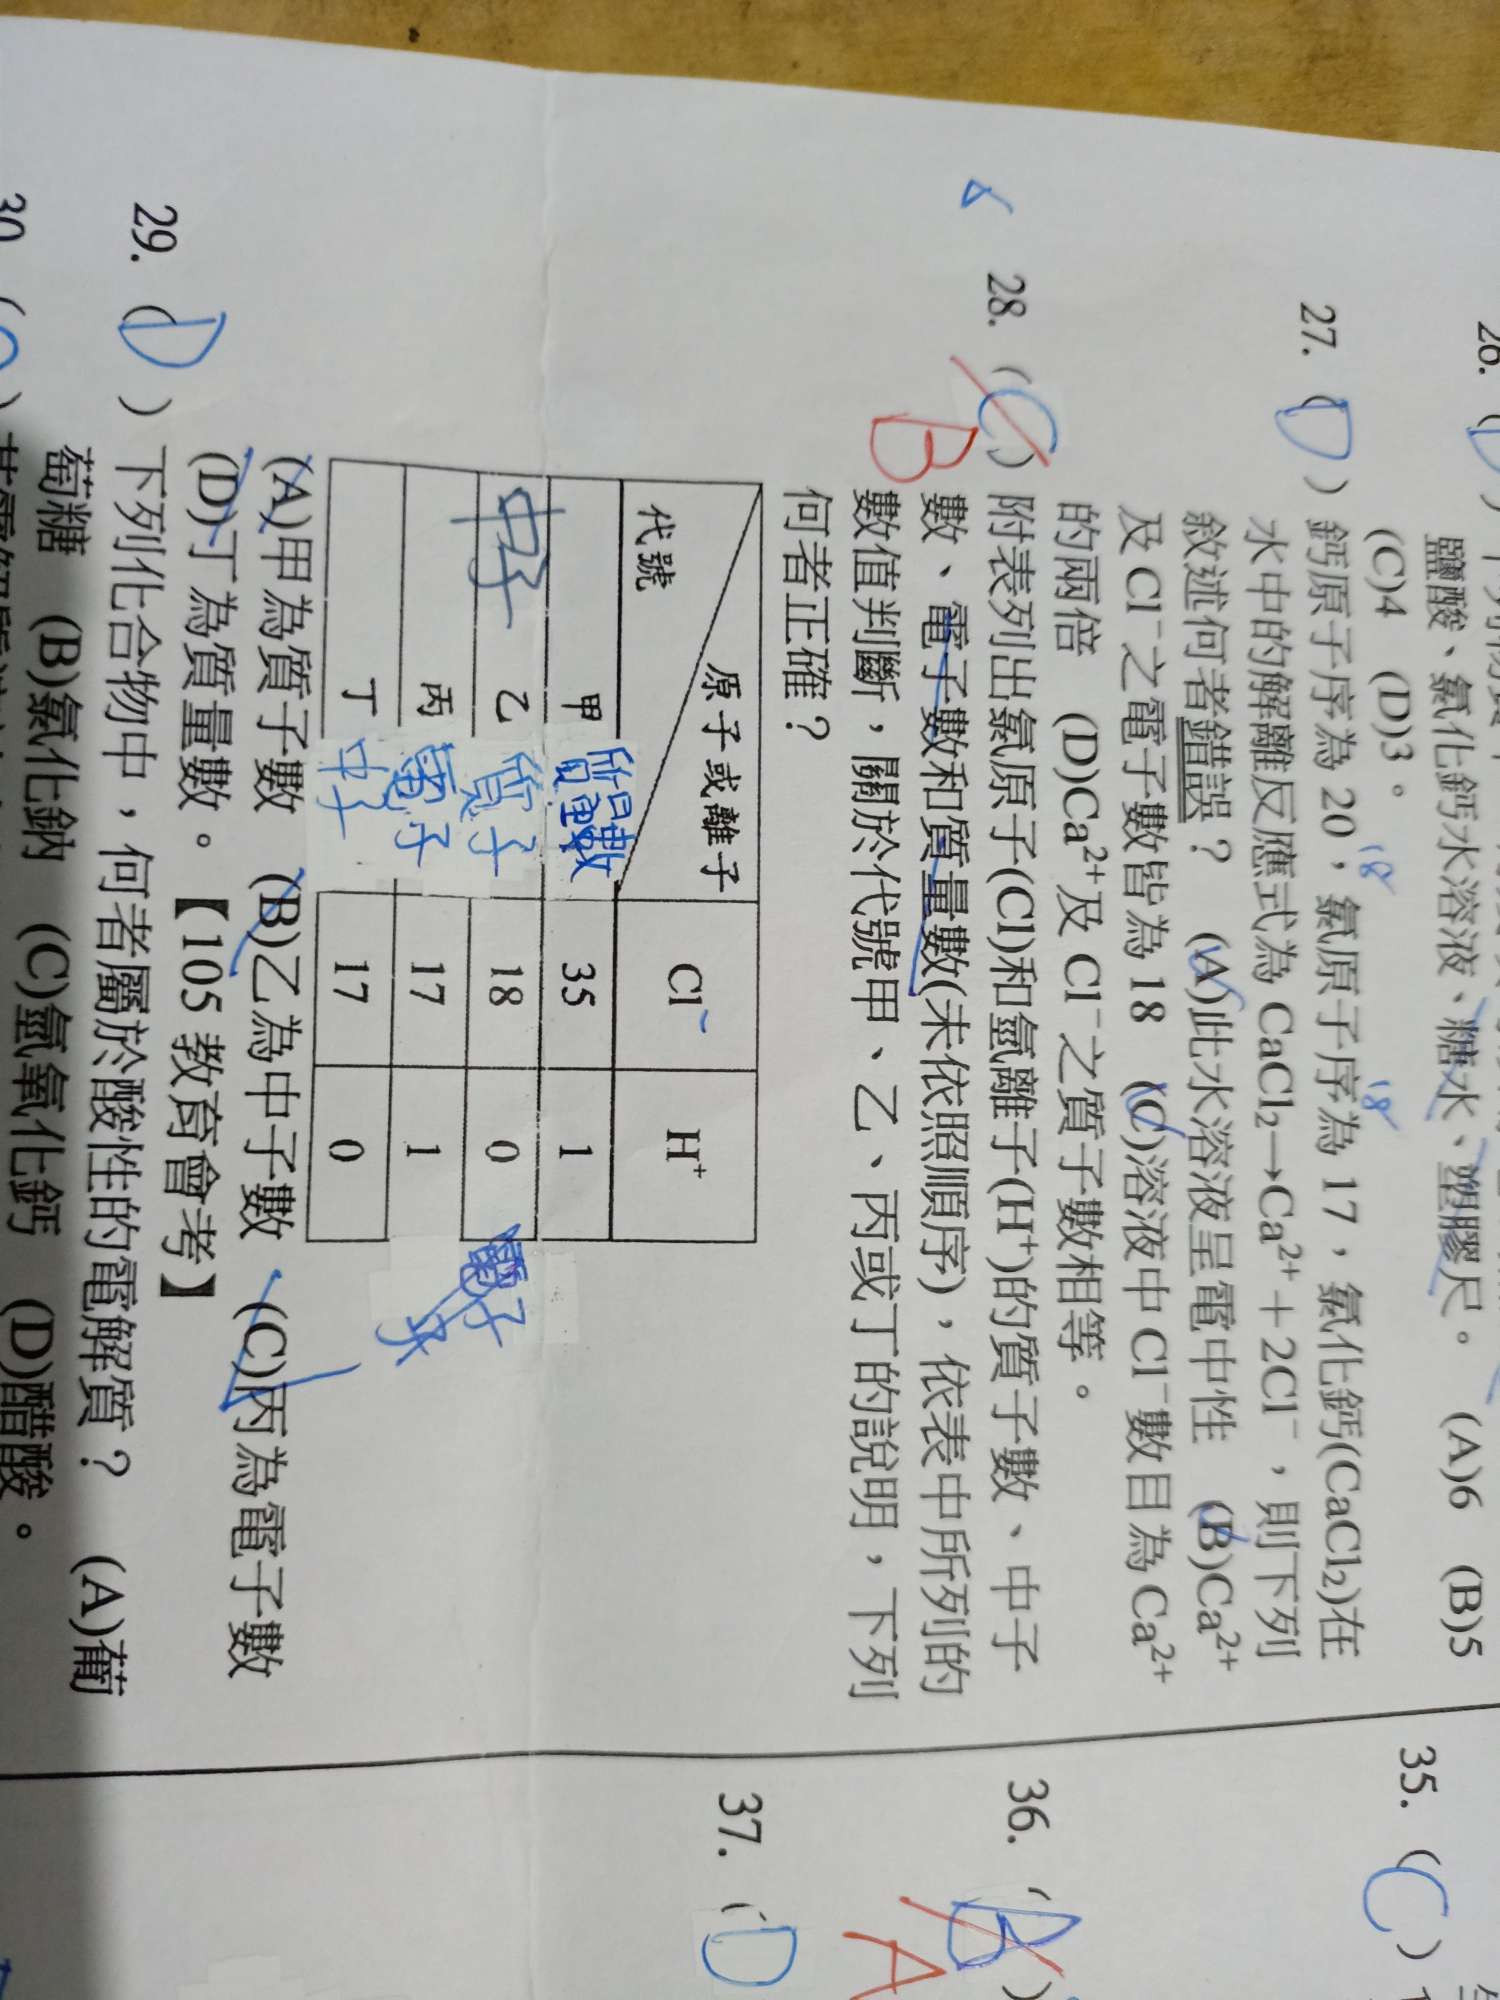 鹽酸、氯化鈣水溶液、糖水、塑膠尺。 (A)6 (B)5
(C)4 (D)3。
27. (D) 鈣原子序為 20,氯原子序為 17,氯化鈣(CaCl₂)在
18 18
水中的解離反應式為 CaCl₂→Ca²⁺+2Cl⁻,則下列
敘述何者錯誤? (A)此水溶液呈電中性 (B)Ca²⁺
及 Cl⁻之電子數皆為 18 (C)溶液中 Cl⁻數目為 Ca²⁺
的兩倍 (D)Ca²⁺及 Cl⁻之質子數相等。
28. (C) 附表列出氯原子(Cl)和氫離子(H⁺)的質子數、中子
B
數、電子數和質量數(未依照順序),依表中所列的
數值判斷,關於代號甲、乙、丙或丁的說明,下列
何者正確?
原子或離子 Cl H⁺
代號
甲 質量數 35 1
中子 乙 質子 18 0 電子
丙 電子 17 1
丁 中子 17 0
(A)甲為質子數 (B)乙為中子數 (C)丙為電子數
(D)丁為質量數。【105 教育會考】
29. (D) 下列化合物中,何者屬於酸性的電解質? (A)葡
萄糖 (B)氯化鈉 (C)氫氧化鈣 (D)醋酸。
30.
35. (C)
36. (B)
A
37. (D